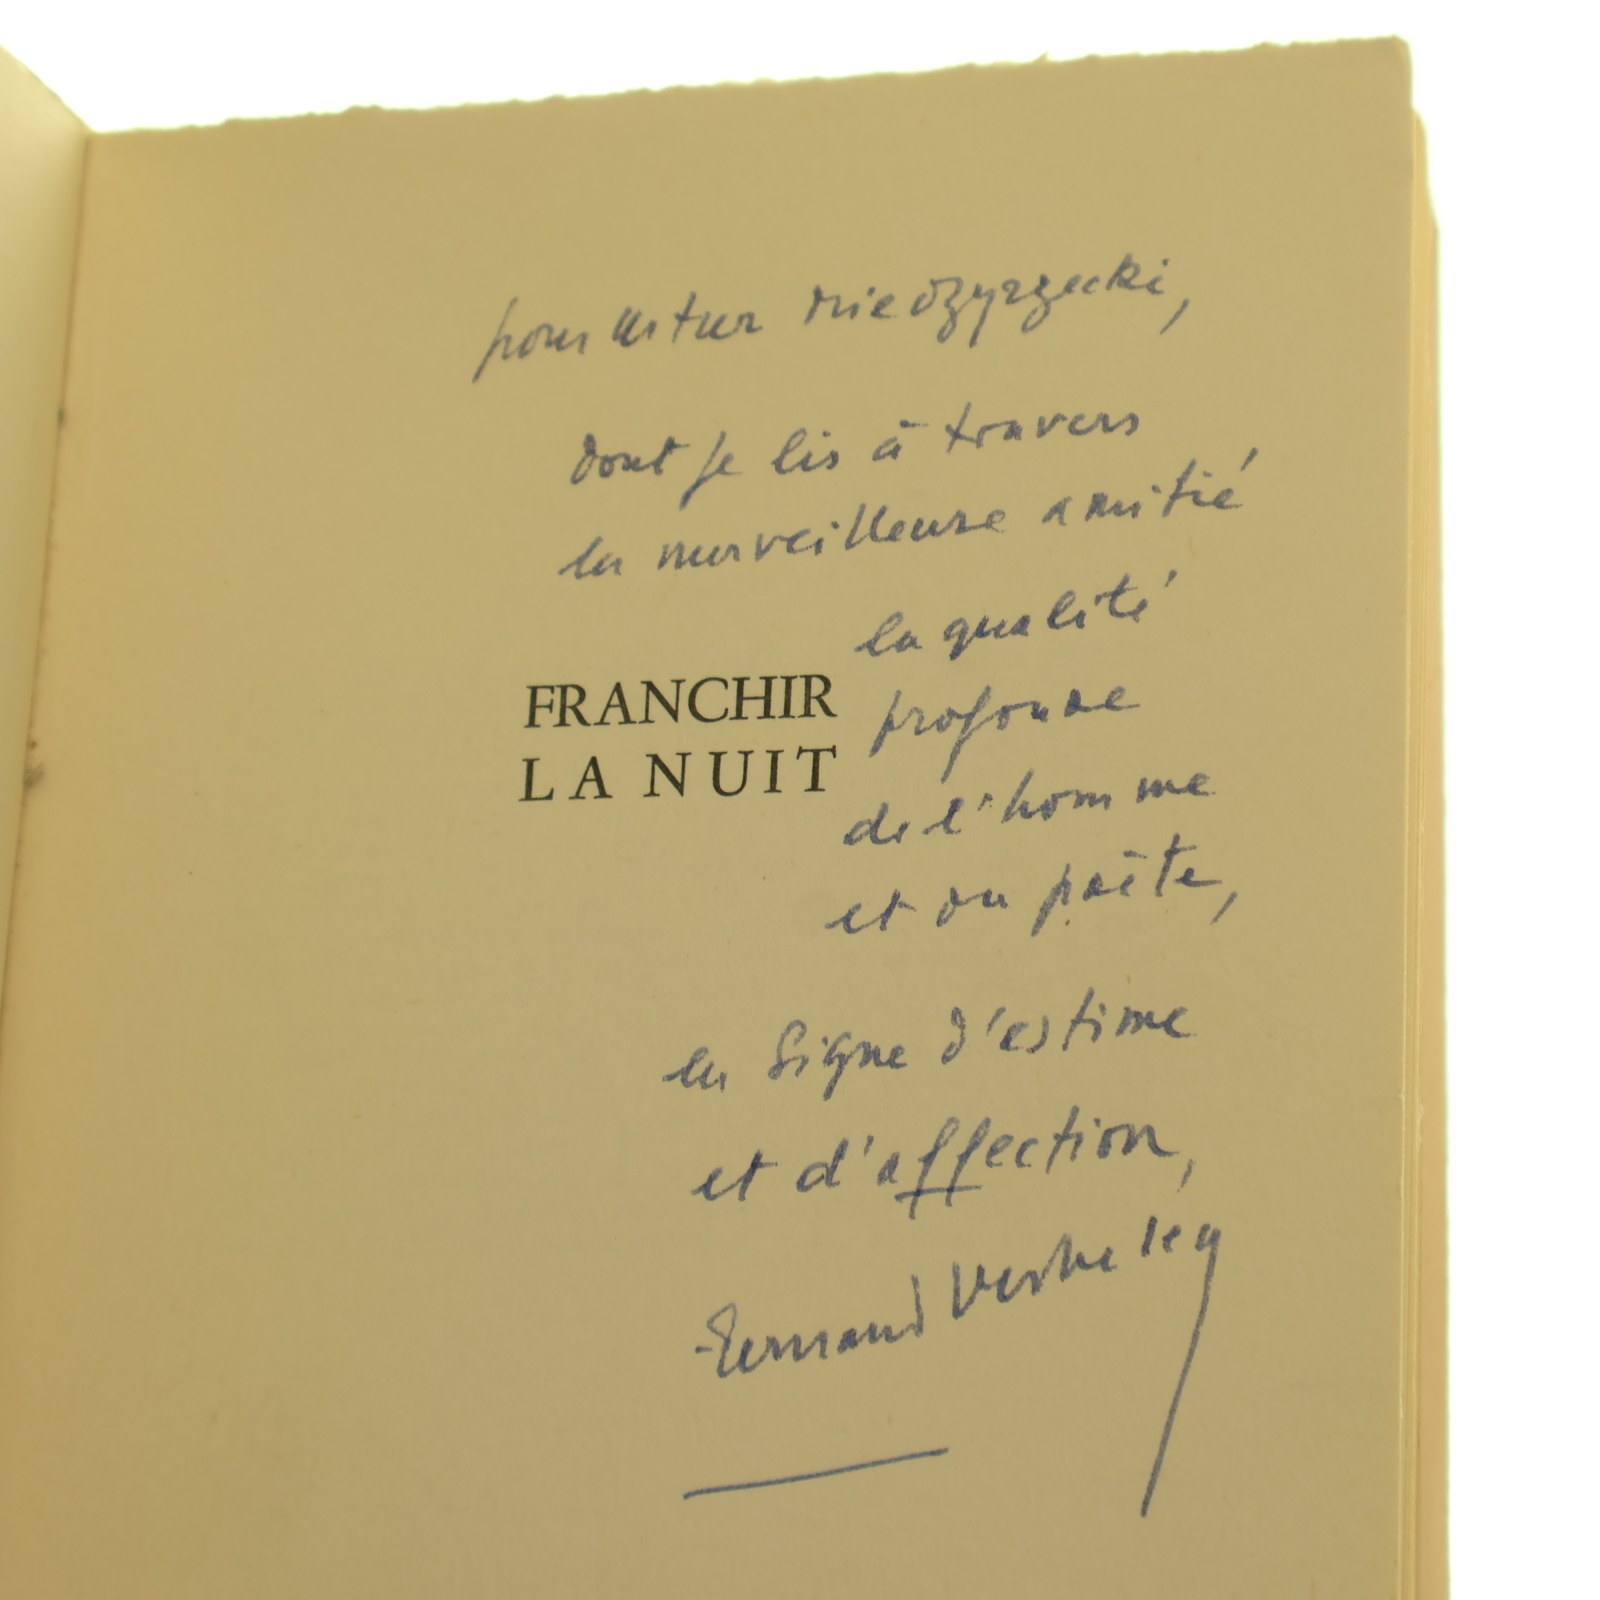 pour Artur Miedzyrzecki,
dont je lis à travers
la merveilleuse amitié
la qualité
profonde
FRANCHIR
LA NUIT
de l'homme
et du poète,
en signe d'estime
et d'affection,
Fernand Verhesen